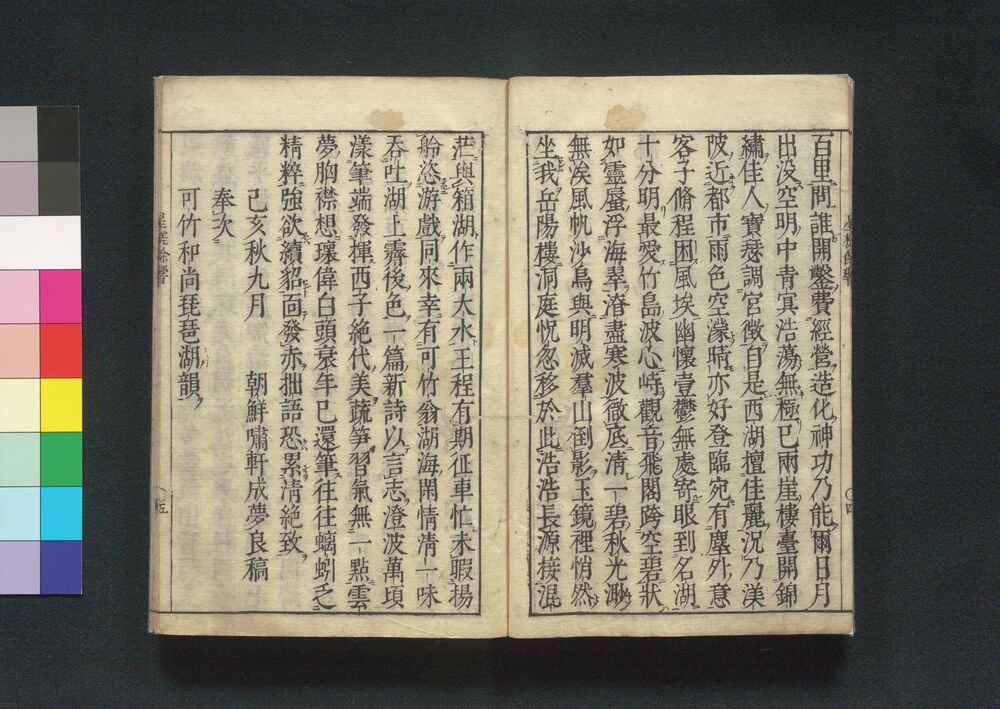 百里問誰開鑿費經營造化神功乃能爾日月
出没空明中青冥浩蕩無極已兩崖樓臺開錦
繡佳人寶瑟調宮徵自是西湖擅佳麗況乃渼
陂近都市雨色空濛晴亦好登臨宛有塵外意
客子脩程困風埃幽懷壹鬱無處寄眼到名湖
十分明最愛竹島波心峙觀音飛閣跨空碧狀
如靈蜃浮海翠潦盡寒波徹底清一碧秋光渺
無涘風帆沙鳥與明滅羣山倒影玉鏡裡悄然
坐我岳陽樓洞庭怳忽移於此浩浩長源接混
茫與箱湖作兩大水王程有期征車忙未暇揚
舲恣游戲同來幸有可竹翁湖海閑情清一味
吞吐湖上霽後色一篇新詩以言志澄波萬頃
漾筆端發揮西子絶代美蔬笋習氣無一點雲
夢胸襟想瓌偉白頭衰年已還筆往往螭蚓之
精粹強欲續貂面發赤拙語恐累清絶致
己亥秋九月 朝鮮嘯軒成夢良稿
奉次
可竹和尚琵琶湖韻
星槎餘響
五
四